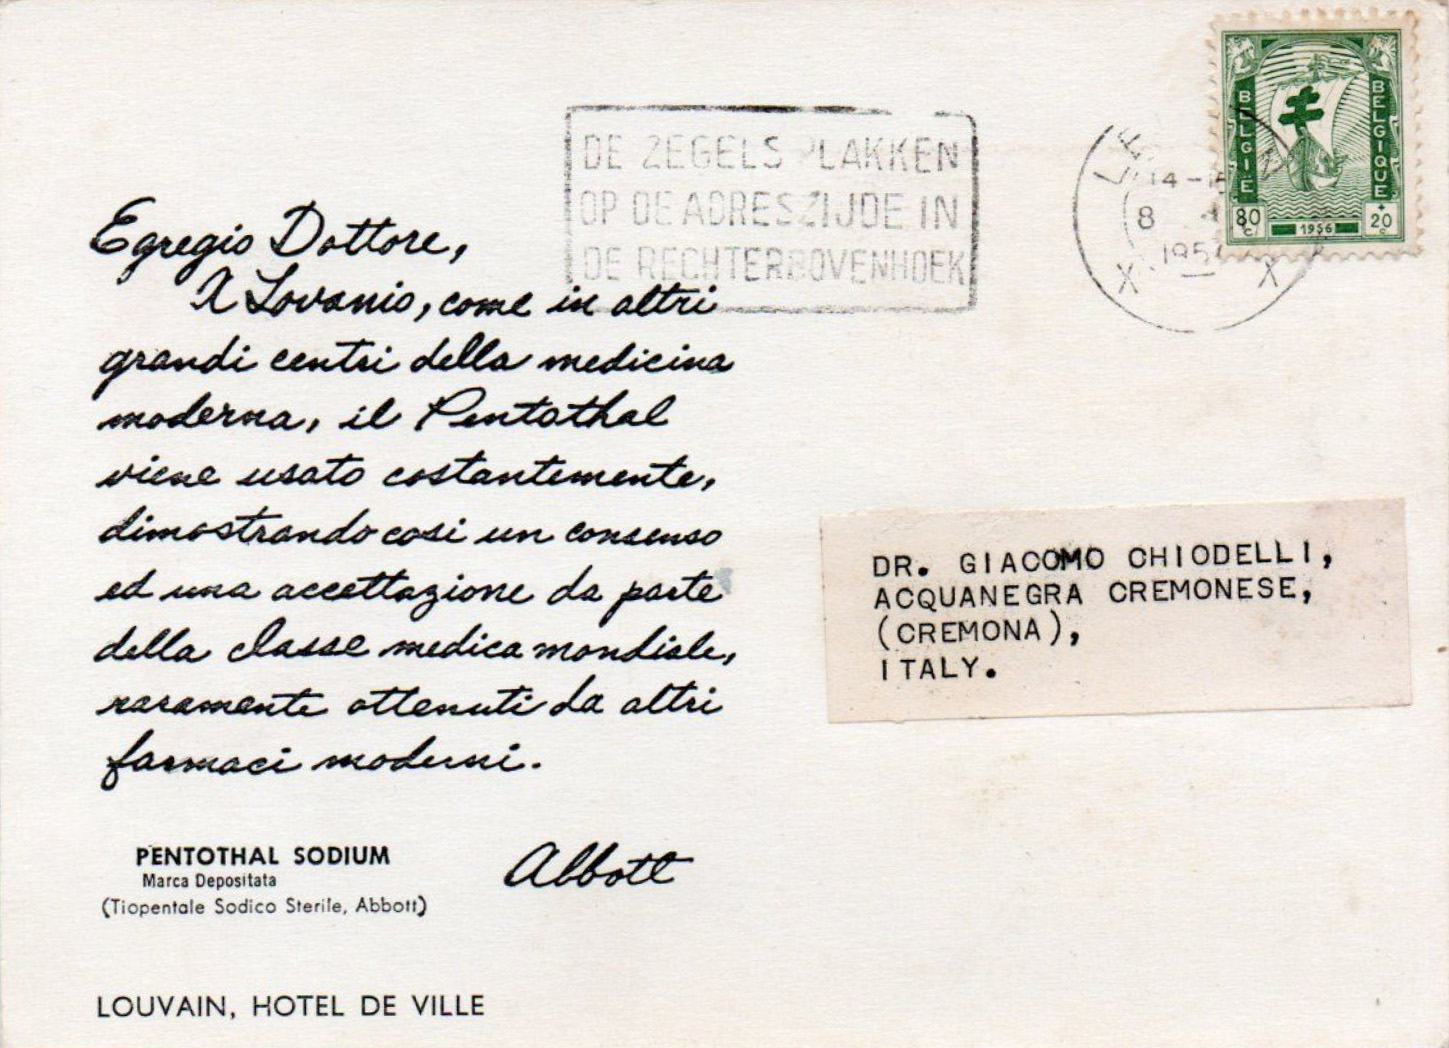 BELGIE
BELGIQUE
80 c
1956
+ 20 c
DE ZEGELS PLAKKEN
OP DE ADRESZIJDE IN
DE RECHTERBOVENHOEK
14-15
8
X X
Egregio Dottore,
A Lovanio, come in altri
grandi centri della medicina
moderna, il Pentothal
viene usato costantemente,
dimostrando cosi un consenso
ed una accettazione da parte
della classe medica mondiale,
raramente ottenuti da altri
farmaci moderni.
Abbott
PENTOTHAL SODIUM
Marca Depositata
(Tiopentale Sodico Sterile, Abbott)
LOUVAIN, HOTEL DE VILLE
DR. GIACOMO CHIODELLI,
ACQUANEGRA CREMONESE,
(CREMONA),
ITALY.